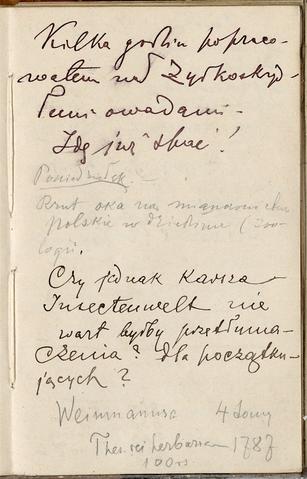 Kilka godzin popraco-
wałem nad Żyłkoskrzyd-
łemi owadami.
Idę już spać!
Poniedziałek.
Rzut oka na mianownictwo
polskie w dziedzinie (zoo-
logii.
Czy jednak Karsza
Insectenwelt nie
wart byłby przetłuma-
czenia? dla początku-
jących?
Weinmanusa 4 tomy
herbarum 1787
100